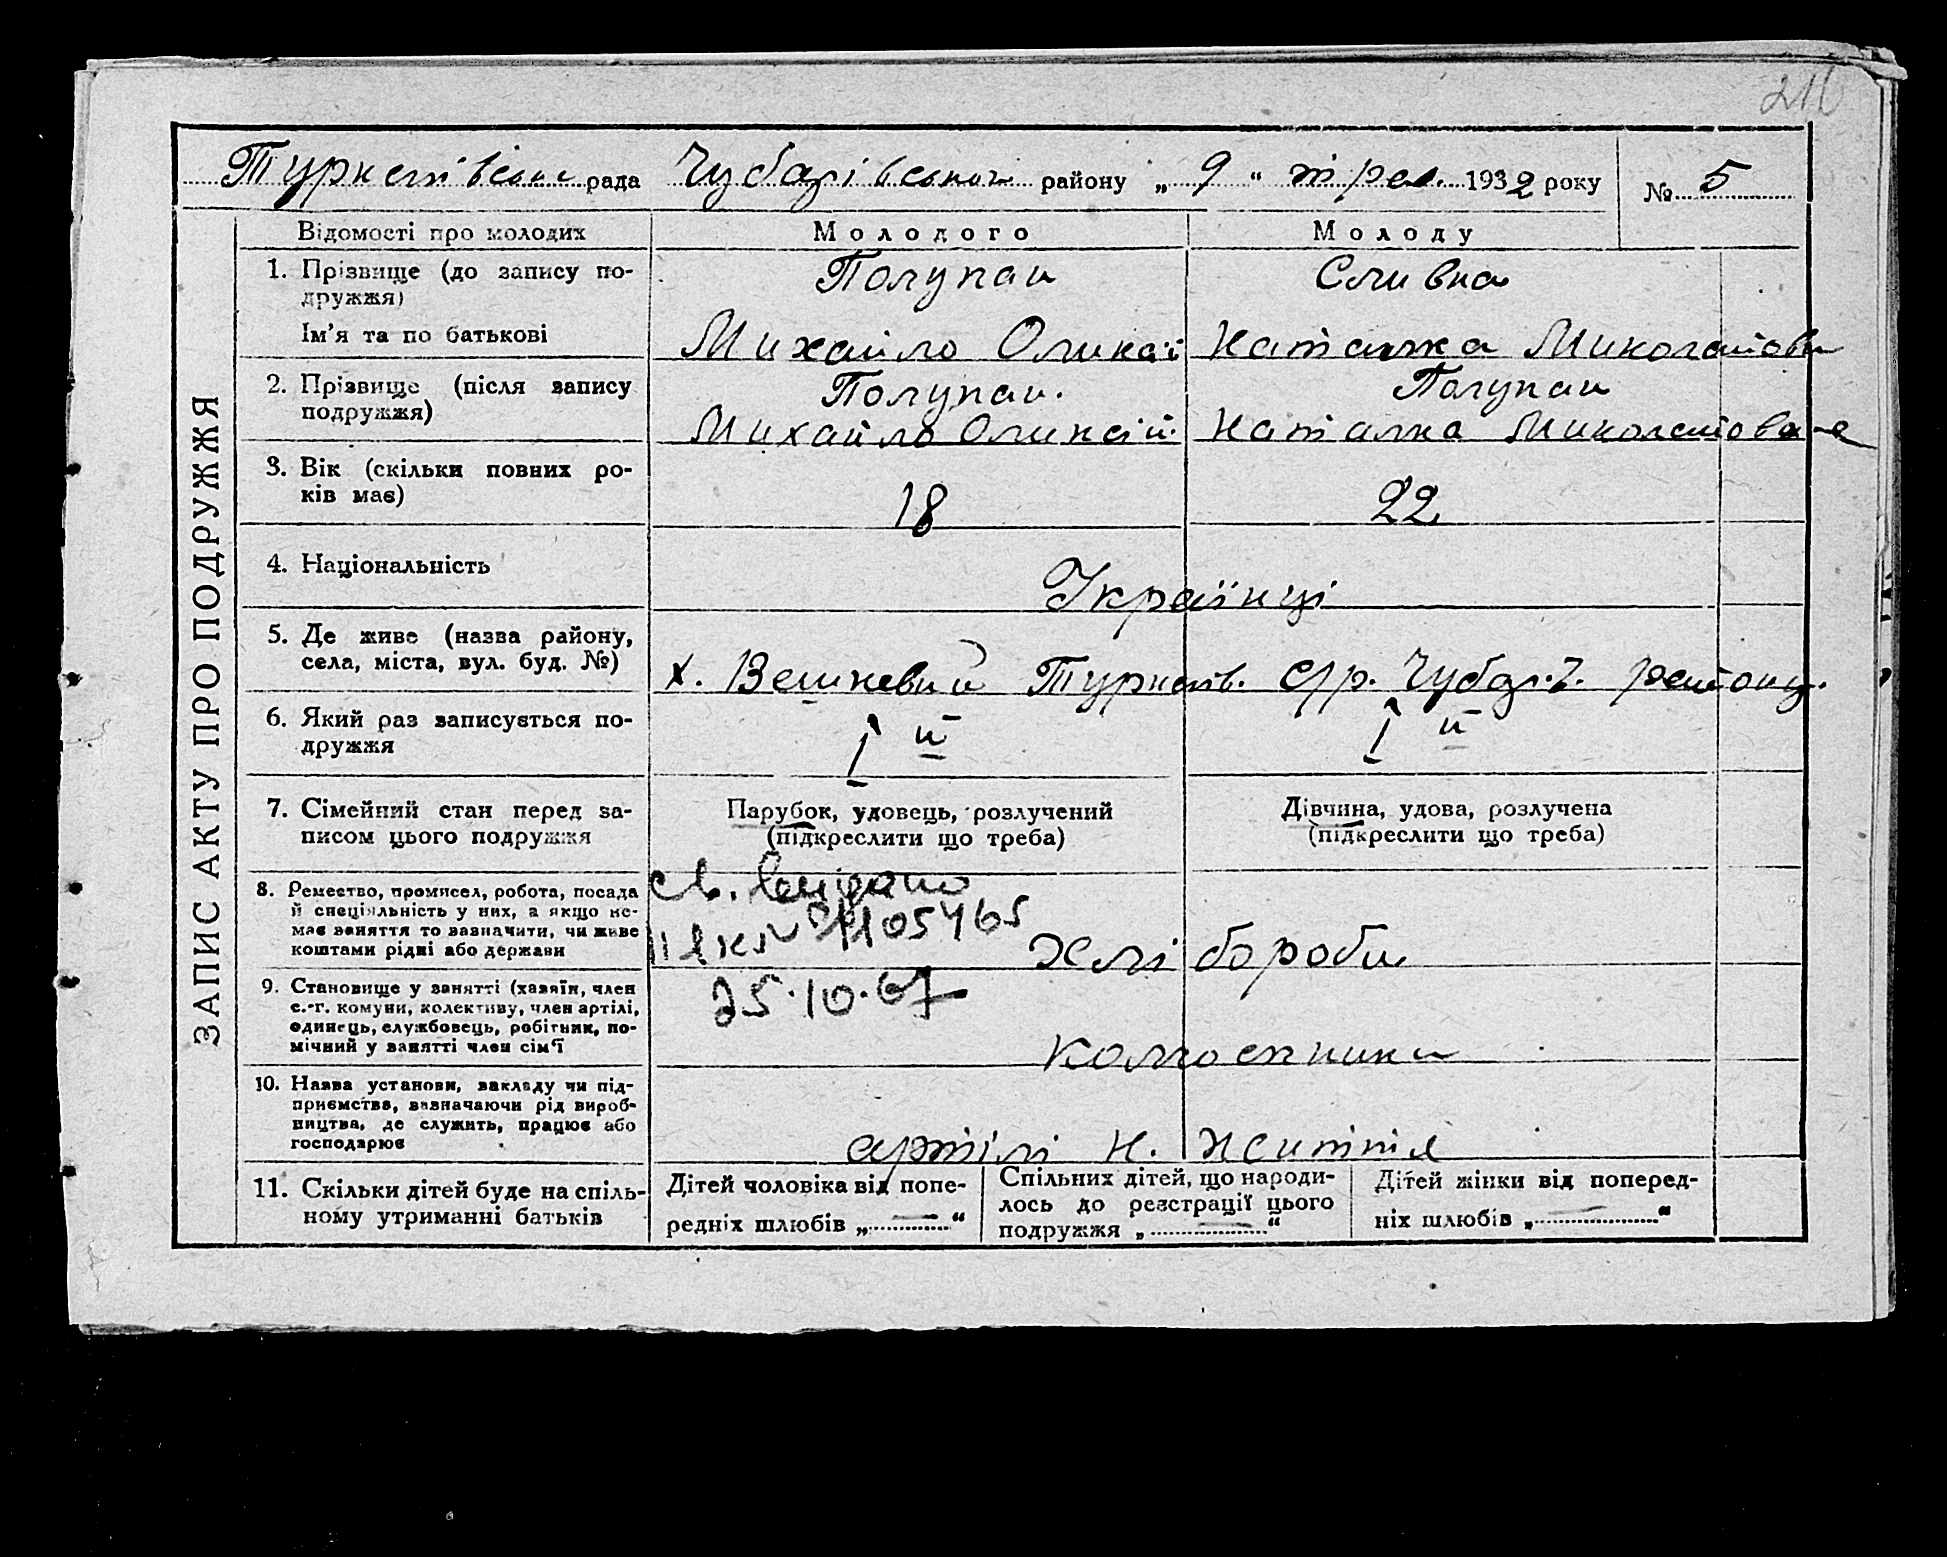 216
Туркенівська рада Чубарівського району „ 9 “ трав. 1932 року № 5
ЗАПИС АКТУ ПРО ПОДРУЖЖЯ
Відомості про молодих Молодого Молоду
1. Прізвище (до запису по-
дружжя)
Полупан Сливка
Ім'я та по батькові Михайло Оликс Наталка Миколайовн
2. Прізвище (після запису
подружжя)
Полупан. Полупан
Михайло Оликсій. Наталка Миколайовна
3. Вік (скільки повних ро-
ків має)
18 22
4. Національність
Українці
5. Де живе (назва району,
села, міста, вул. буд. №)
х. Туркенів. с/р. Чубар. району.
6. Який раз записується по-
дружжя
I й I й
7. Сімейний стан перед за-
писом цього подружжя
Парубок, удовець, розлучений
(підкреслити що треба)
Дівчина, удова, розлучена
(підкреслити що треба)
8. Ремество, промисел, робота, посада
й спеціяльність у них, а якщо не-
має заняття то зазначити, чи живе
коштами рідні або держави
св. видано
№ 1105465
25.10.67
Хлібороби
9. Становище у занятті (хазяїн, член
с.-г. комуни, колективу, член артілі,
одинець, службовець, робітник, по-
мічний у занятті член сім'ї
колгоспники
10. Назва установи, закладу чи під-
приємства, зазначаючи рід вироб-
ництва, де служить, працює або
господарює
артілі Н. Життя
11. Скільки дітей буде на спіль-
ному утриманні батьків
Дітей чоловіка від попе-
редніх шлюбів „ — “
Спільних дітей, що народи-
лось до реєстрації цього
подружжя „ — “
Дітей жінки від поперед-
ніх шлюбів „ — “